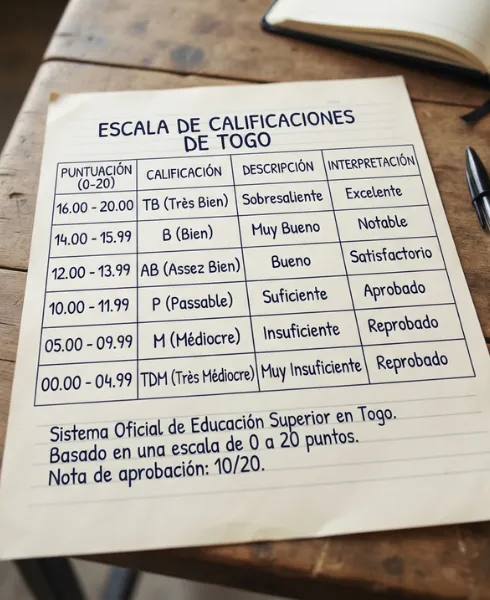 ESCALA DE CALIFICACIONES
DE TOGO
PUNTUACIÓN (0-20) CALIFICACIÓN DESCRIPCIÓN INTERPRETACIÓN
16.00 - 20.00 TB (Très Bien) Sobresaliente Excelente
14.00 - 15.99 B (Bien) Muy Bueno Notable
12.00 - 13.99 AB (Assez Bien) Bueno Satisfactorio
10.00 - 11.99 P (Passable) Suficiente Aprobado
05.00 - 09.99 M (Médiocre) Insuficiente Reprobado
00.00 - 04.99 TDM (Très Médiocre) Muy Insuficiente Reprobado
Sistema Oficial de Educación Superior en Togo.
Basado en una escala de 0 a 20 puntos.
Nota de aprobación: 10/20.